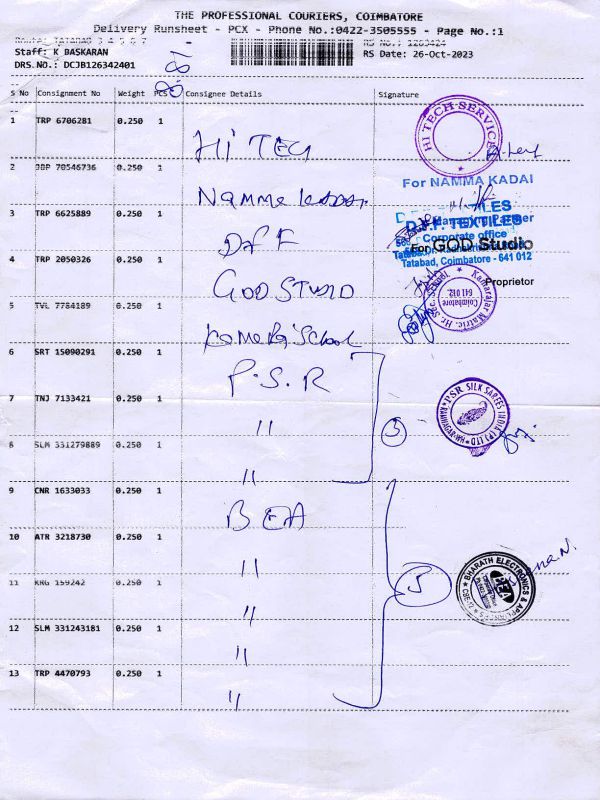 THE PROFESSIONAL COURIERS, COIMBATORE
Delivery Runsheet - PCX - Phone No.:0422-3505555 - Page No.:1
Route: TATABAD 3 4 5 6 7
RS No.: 1263424
Staff: K BASKARAN
RS Date: 26-Oct-2023
DRS.NO.: DCJB126342401
S No Consignment No Weight PCS Consignee Details Signature
1 TRP 6706281 0.250 1 Hi TECH
HI TECH SERVICE
2 70546736 0.250 1 Namma Kadai
For NAMMA KADAI
3 TRP 6625889 0.250 1 DFF
TEXTILES
Corporate office
Tatabad, Coimbatore - 641 012
4 TRP 2050326 0.250 1 GOD STUDIO
For GOD Studio
Proprietor
5 TVL 7784189 0.250 1 School
Kamarajar Matric. Hr. Sec. School
Coimbatore
641 012
6 SRT 15090291 0.250 1 P.S.R
7 TNJ 7133421 0.250 1 "
3
PSR SILK SAREES INDIA (P) LTD
8 SLM 331279889 0.250 1 "
9 CNR 1633033 0.250 1 BEA
10 ATR 3218730 0.250 1 "
11 KRG 159242 0.250 1 "
5
BHARATH ELECTRONICS & APPLIANCES
BEA
12 SLM 331243181 0.250 1 "
13 TRP 4470793 0.250 1 "